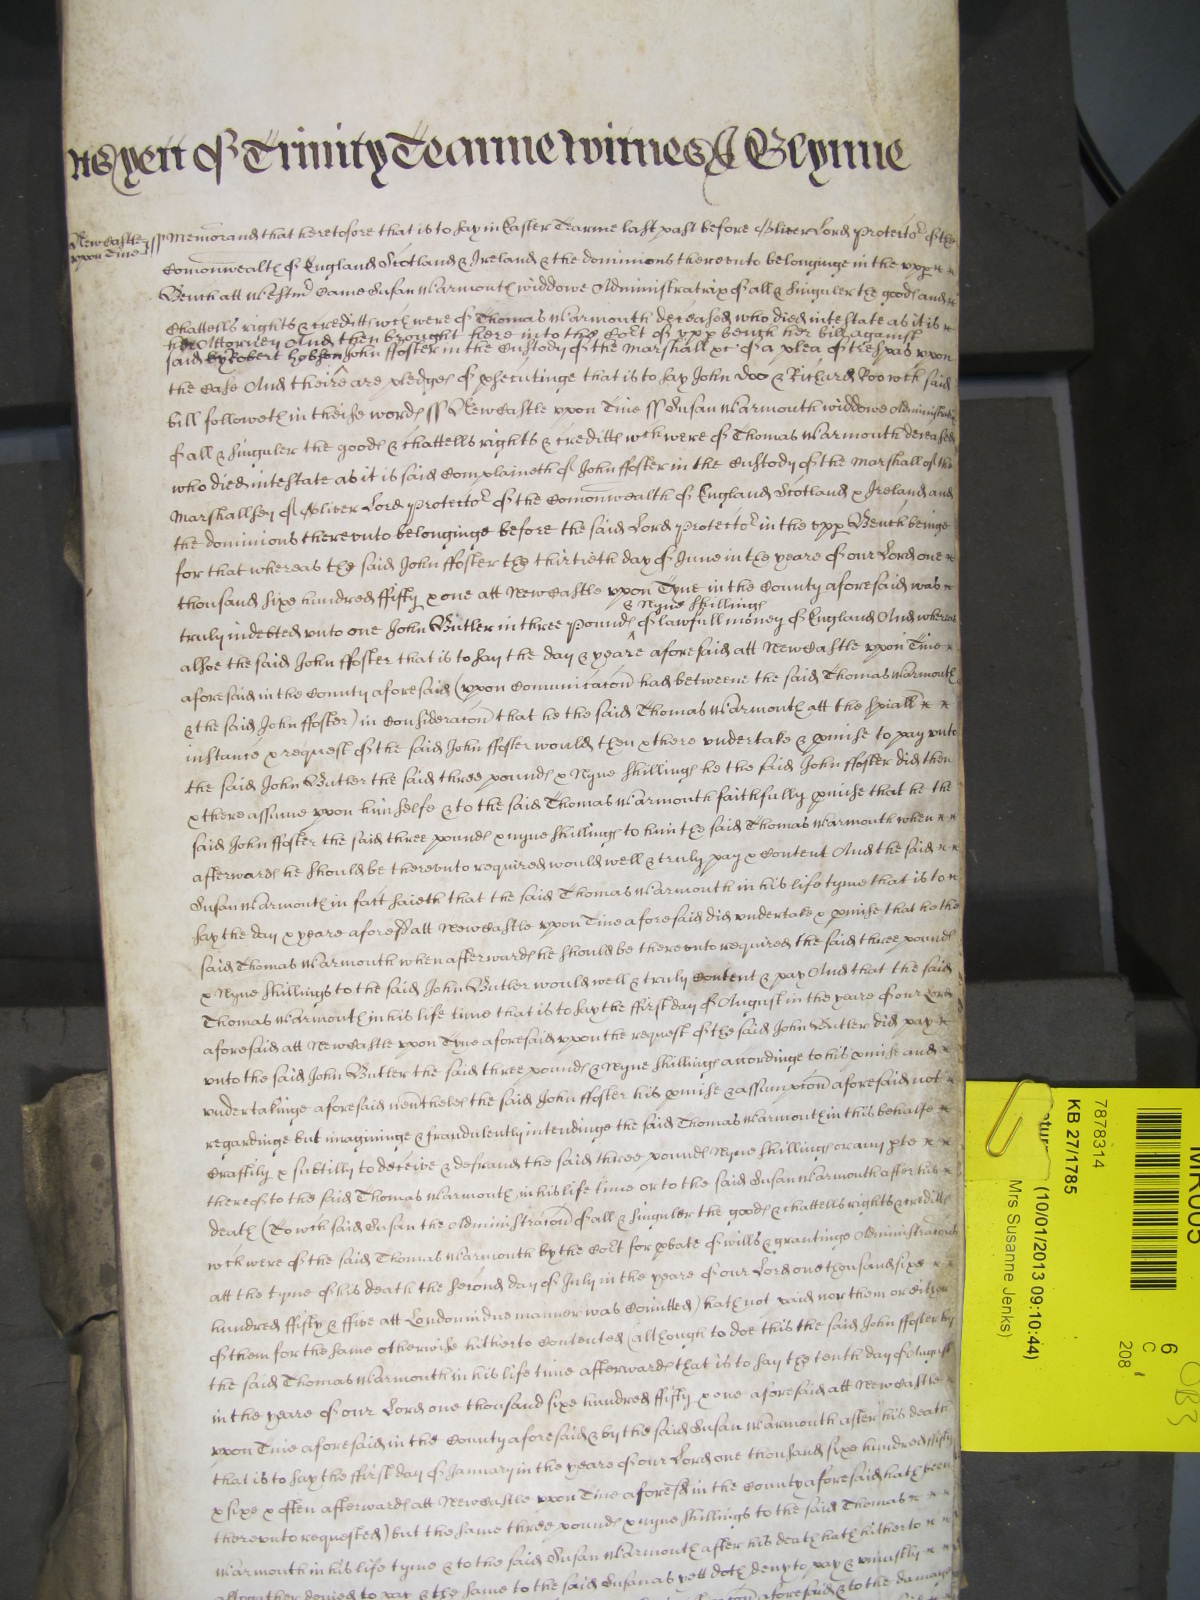 As yett of Trinity Tearme witnes J Glynne
NewCastle
vpon Tine
ss Memorand that heretofore that is to say in Easter Tearme last past before Oliver Lord Protector of the
Comonwealth of England Scotland & Ireland & the dominions therevnto belonginge in the vpp
Bench att Westmr Came Susan Warmouth widdowe Administratrix of all & singuler the goods and
Chattells rights & creditts wch were of Thomas Warmouth deceased who died intestate as it is
her Attorney And then brought here into the Cort of vpp bench her bill against
said by Robert Hobson John ffoster in the Custody of the Marshall &c of a plea of trespas vpon
the Case And theire are pledges of prsecutinge that is to say John Doo & Richard Roo wch said
bill followeth in theise words ss NewCastle vpon Tine ss Susan Warmouth widdowe Administratrix
of all & singuler the goods & chattells rights & creditts wch were of Thomas Warmouth deceased
who died intestate as it is said Complaineth of John ffoster in the Custody of the Marshall of the
Marshallsey of Oliver Lord Protector of the Comonwealth of England Scotland & Ireland and
the dominions therevnto belonginge before the said Lord Protector in the vpp Bench beinge
for that whereas the said John ffoster the thirtieth day of June in the yeare of our Lord one
thousand sixe hundred ffiffty & one att NewCastle vpon Tyne in the County aforesaid was
& Nyne shillings
truly indebted vnto one John Butler in three pounds of lawfull money of England And whereas
alsoe the said John ffoster that is to say the day & yeare aforesaid att NewCastle vpon Tine
aforesaid in the County aforesaid (vpon Comunicacon had betweene the said Thomas Warmouth
& the said John ffoster) in Consideracon that he the said Thomas Warmouth att the spiall
instance & request of the said John ffoster would then & there vndertake & pmise to pay vnto
the said John Butler the said three pounds & Nyne shillings he the said John ffoster did then
& there assume vpon himselfe & to the said Thomas Warmouth faithfully pmise that he the
said John ffoster the said three pounds & nyne shillings to him the said Thomas Warmouth when
afterwards he should be therevnto required would well & truly pay & Content And the said
Susan Warmouth in fact saieth that the said Thomas Warmouth in his life tyme that is to
say the day & yeare aforesd att NewCastle vpon Tine aforesaid did vndertake & pmise that he the
said Thomas Warmouth when afterwards he should be therevnto required the said three pounds
& Nyne shillings to the said John Butler would well & truly Content & pay And that the said
Thomas Warmouth in his life time that is to say the ffirst day of August in the yeare of our Lord
aforesaid att NewCastle vpon Tyne aforesaid vpon the request of the said John Butler did pay
vnto the said John Butler the said three pounds & Nyne shillings accordinge to his pmise and
vndertakinge aforesaid neutheles the said John ffoster his pmise & assumpcon aforesaid not
regardinge but imagininge & fraudulently intendinge the said Thomas Warmouth in this behalfe
Craftily & subtilly to deceive & defraud the said three pounds Nyne shillings or any pte
thereof to the said Thomas Warmouth in his life time or to the said Susan Warmouth after his
death (To wch said Susan the Administracon of all & singuler the goods & chattells rights & creditts
wch were of the said Thomas Warmouth by the Cort for pbate of wills & grantinge Administracons
att the tyme of his death the second day of July in the yeare of our Lord one thousand sixe
hundred ffifty & ffive att London in due manner was Comitted) hath not paid nor them or either
of them for the same otherwise hitherto Contented (although to doe this the said John ffoster by
the said Thomas Warmouth in his life time afterwards that is to say the tenth day of August
in the yeare of our Lord one thousand sixe hundred ffifty & one aforesaid att NewCastle
vpon Tine aforesaid in the County aforesaid & by the said Susan Warmouth after his death
that is to say the ffirst day of January in the yeare of our Lord one thousand sixe hundred ffifty
& sixe & often afterwards att NewCastle vpon Tine aforesd in the County aforesaid hath been
therevnto requested) but the same three pounds & nyne shillings to the said Thomas
Warmouth in his life tyme & to the said Susan Warmouth after his death hath hitherto
altogether denied to pay & the same to the said Susan as yett doth deny to pay & vniustly
aforesaid & to the damage
(10/01/2013 09:10:44)
Mrs Susanne Jenks)
KB 27/1785
7878314
6
C
208